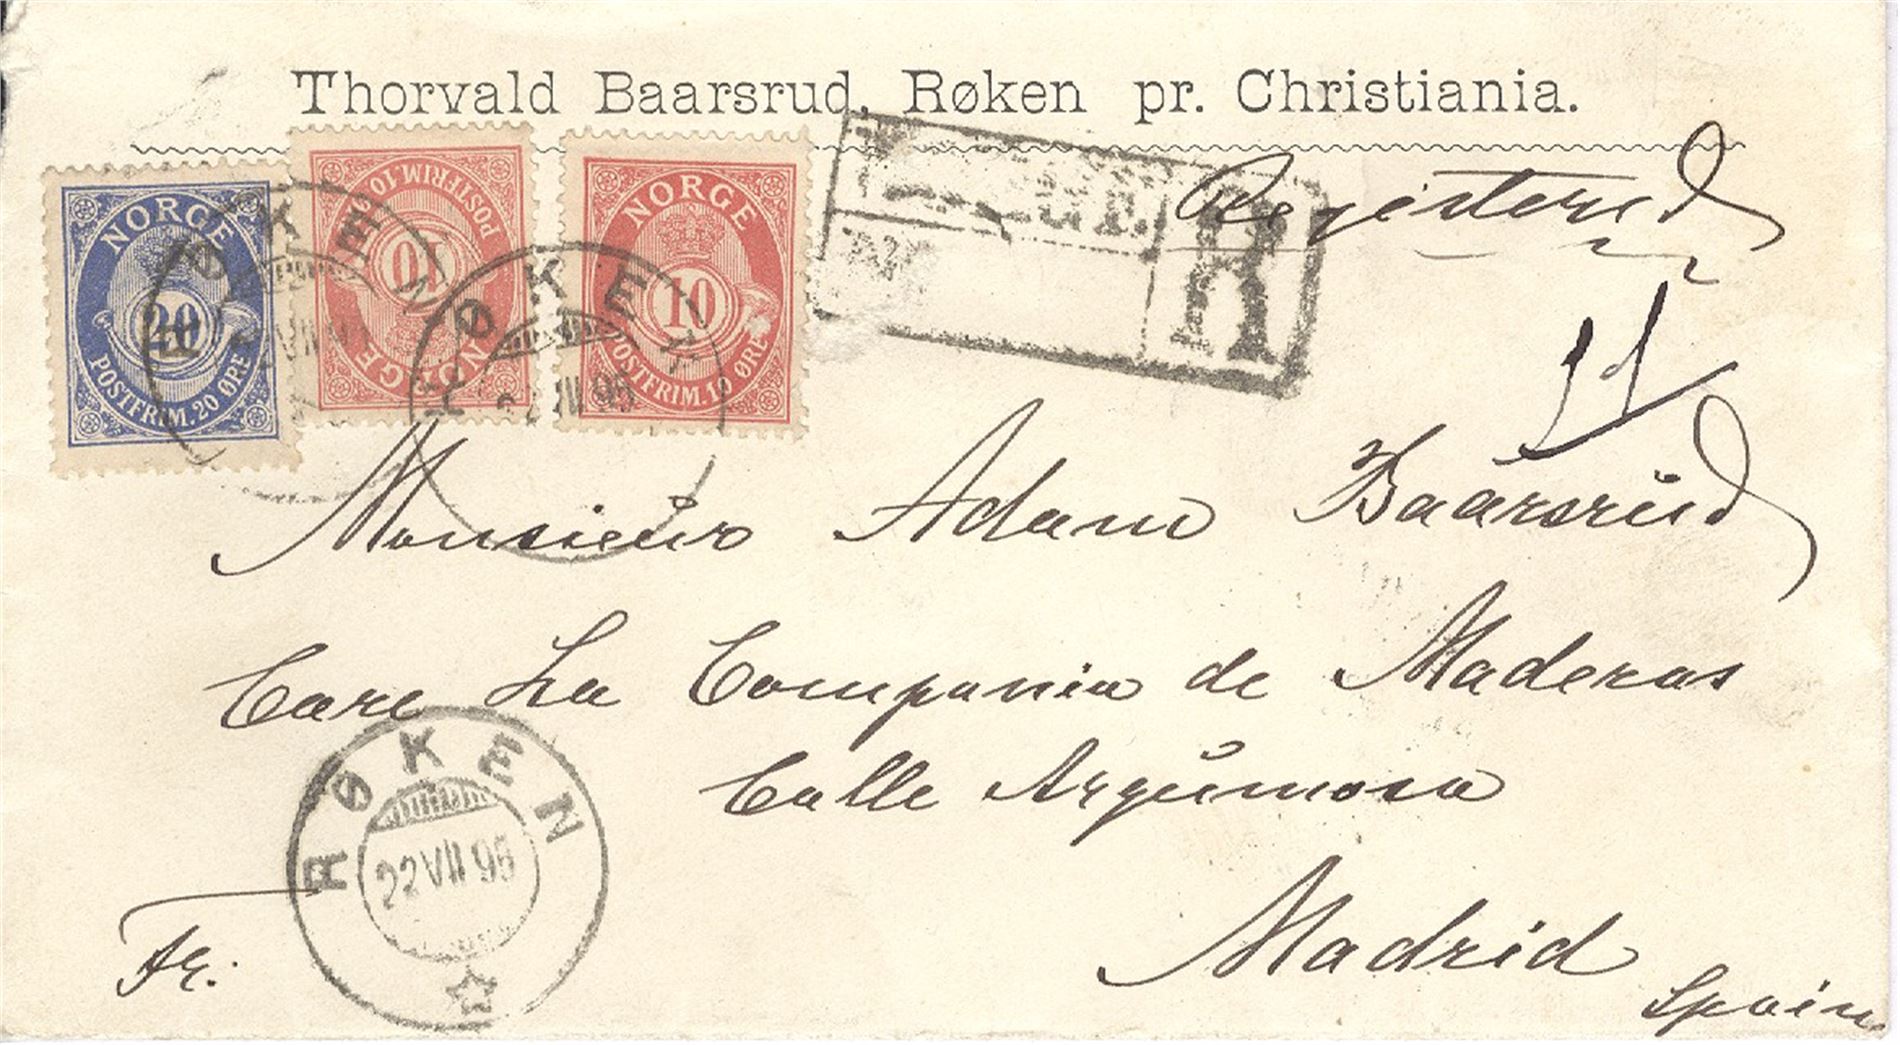 Thorvald Baarsrud, Røken pr. Christiania.
NORGE
20
POSTFRIM. 20 ØRE
NORGE
10
POSTFRIM. 10
NORGE
10
POSTFRIM. 10 ØRE
RØKEN
RØKEN
22 VII 95
R
Registered
11
Monsieur Adam Baarsrud
Care La Compania de Maderas
Calle Argumosa
Madrid
Spain
RØKEN
22 VII 95
Fr.